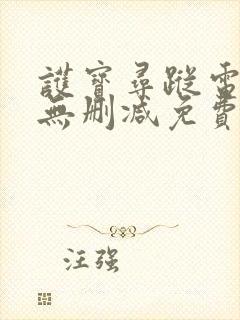 護寶尋蹤電
無刪減免費
汪强